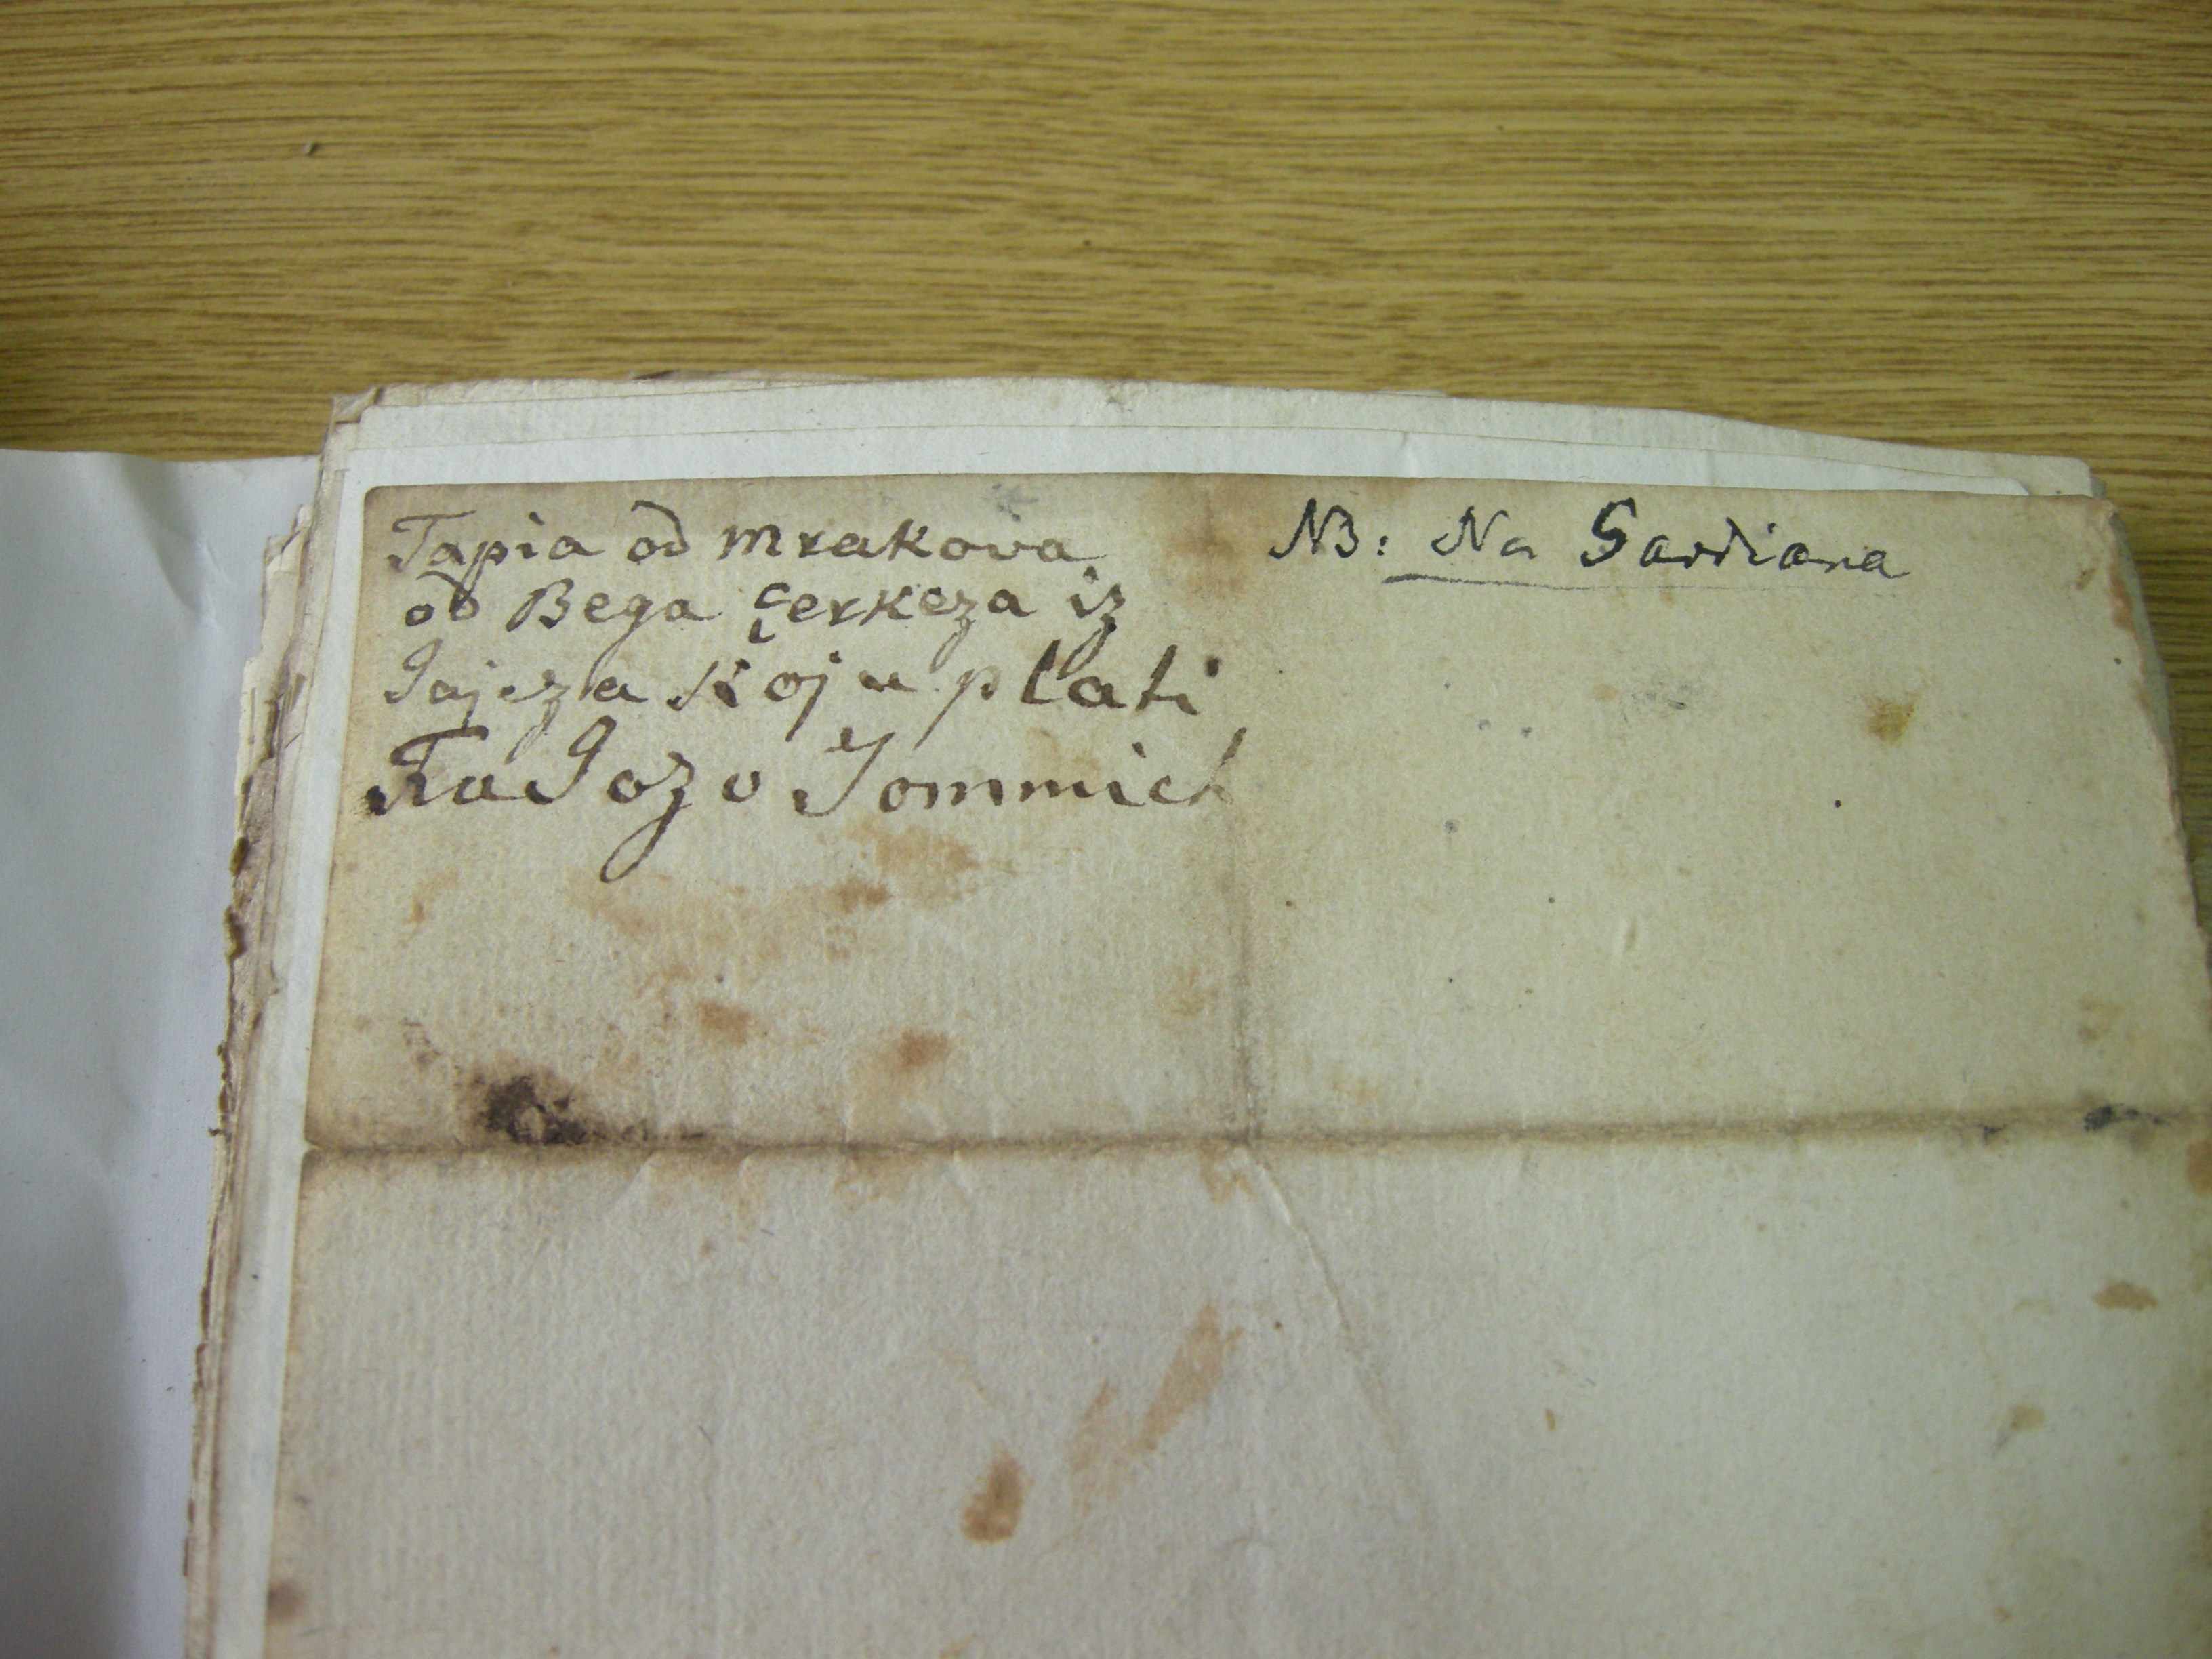 Tapia od mrakova
od Bega çerkeza iz
Jajeza Koju plati
Fra Jozo Tommich
NB: Na Gardiana